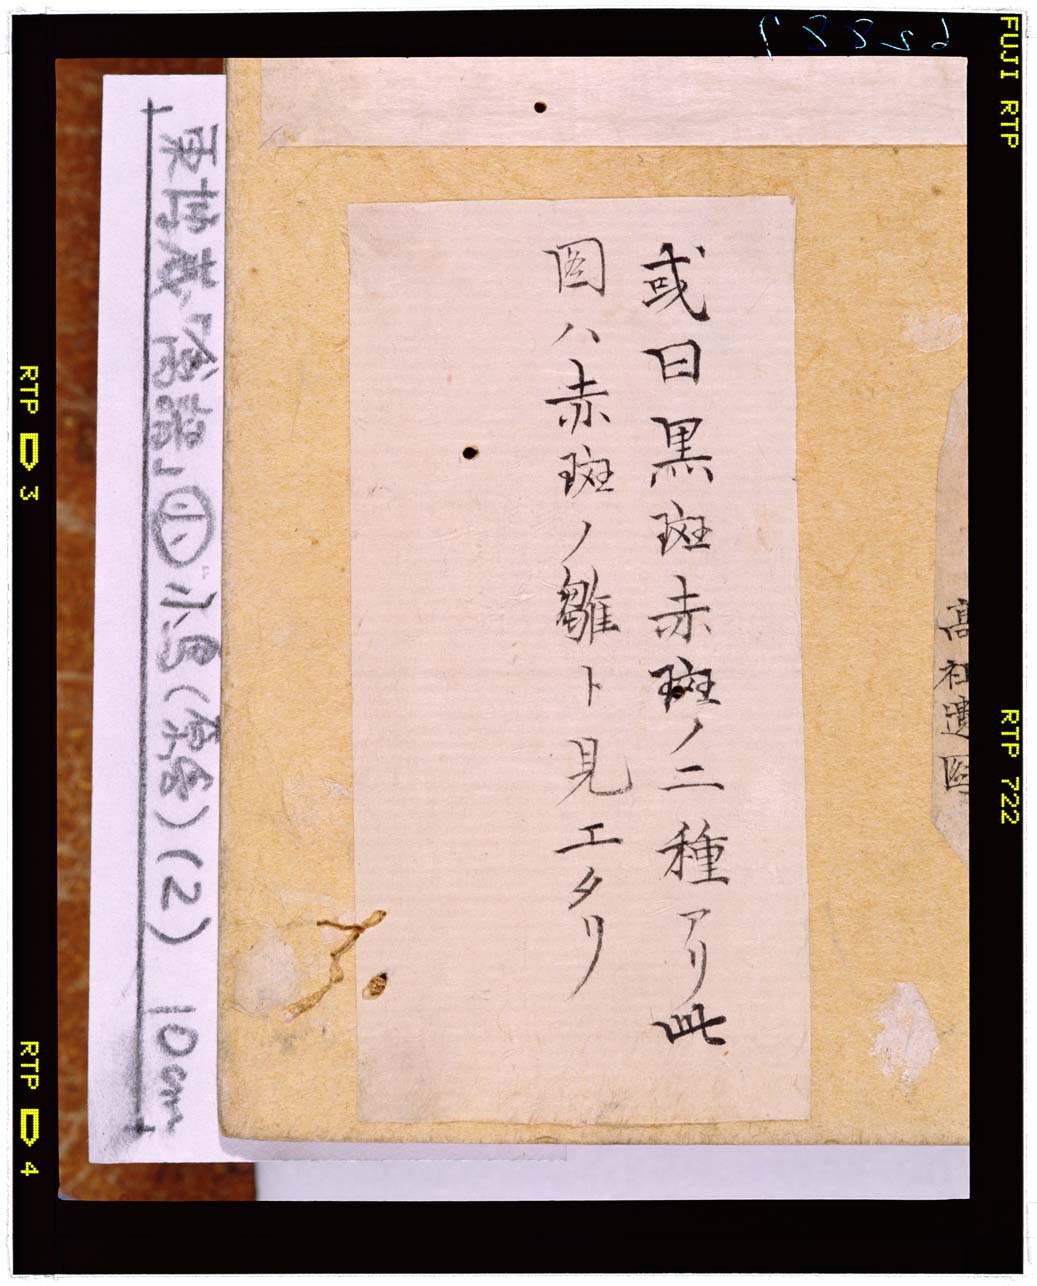 或曰黒斑赤斑ノ二種アリ此
圖ハ赤斑ノ雛ト見エタリ
高祖遺圖
東博蔵「禽譜」㊥小鳥(原禽)(2) 10cm
FUJI RTP
RTP 722
RTP 3
RTP 4